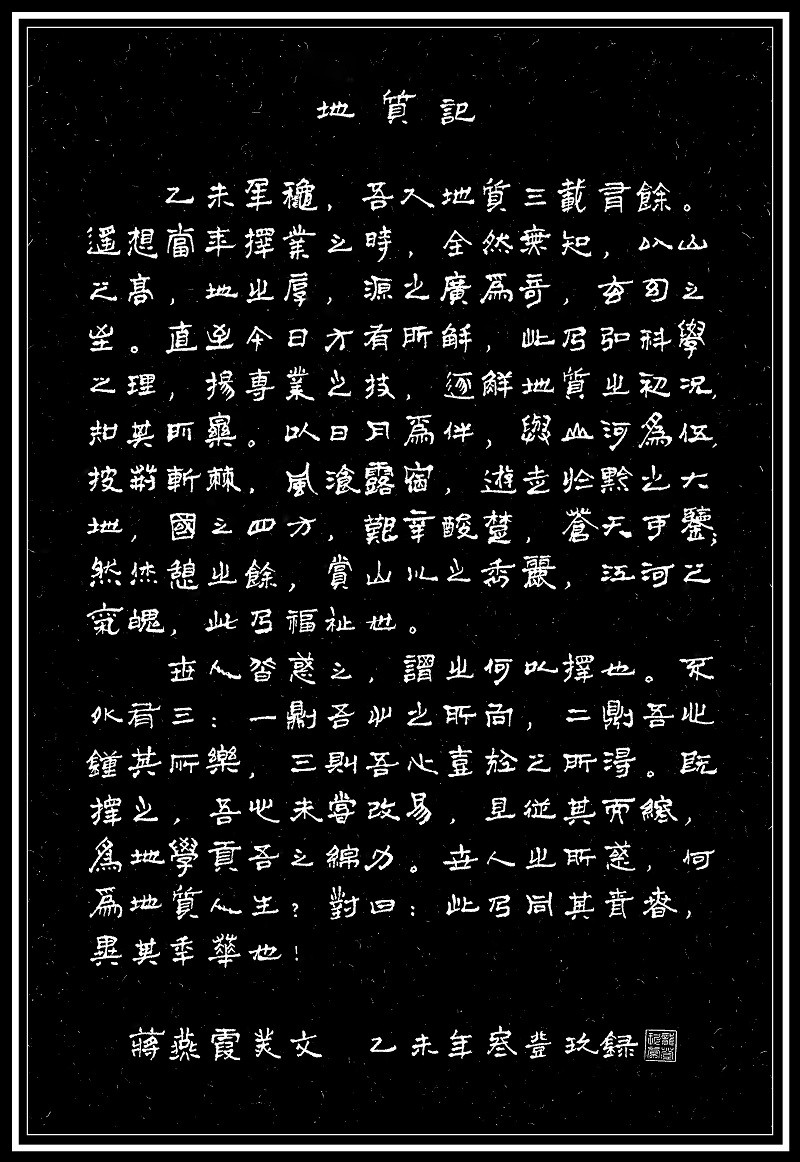 地質記
乙未年穐，吾入地質三載有餘。
遥想當年擇業之時，全然無知，以山
之高，地之厚，源之廣爲奇，玄幻之
至。直至今日方有所解，此乃弘科學
之理，揚專業之技，逐解地質之初况，
知其所異。以日月爲伴，與山河爲伍，
披荊斬棘，風飡露宿，遊走於黔之大
地，國之四方，艱辛酸楚，蒼天可鑒；
然休憩之餘，賞山川之秀麗，江河之
氣魄，此乃福祉也。
世人皆惑之，謂之何以擇也。不
外有三：一則吾心之所向，二則吾心
鍾其所樂，三則吾心喜於之所得。既
擇之，吾心未嘗改易，且從其而終，
爲地學貢吾之綿力。世人之所惑，何
爲地質人生？對曰：此乃同其青春，
異其年華也！
蔣燕霞美文 乙未年寒登玖録